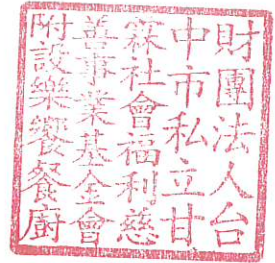 財團法人台
中市私立甘
霖社會福利慈
善事業基金會
附設樂饗餐廚